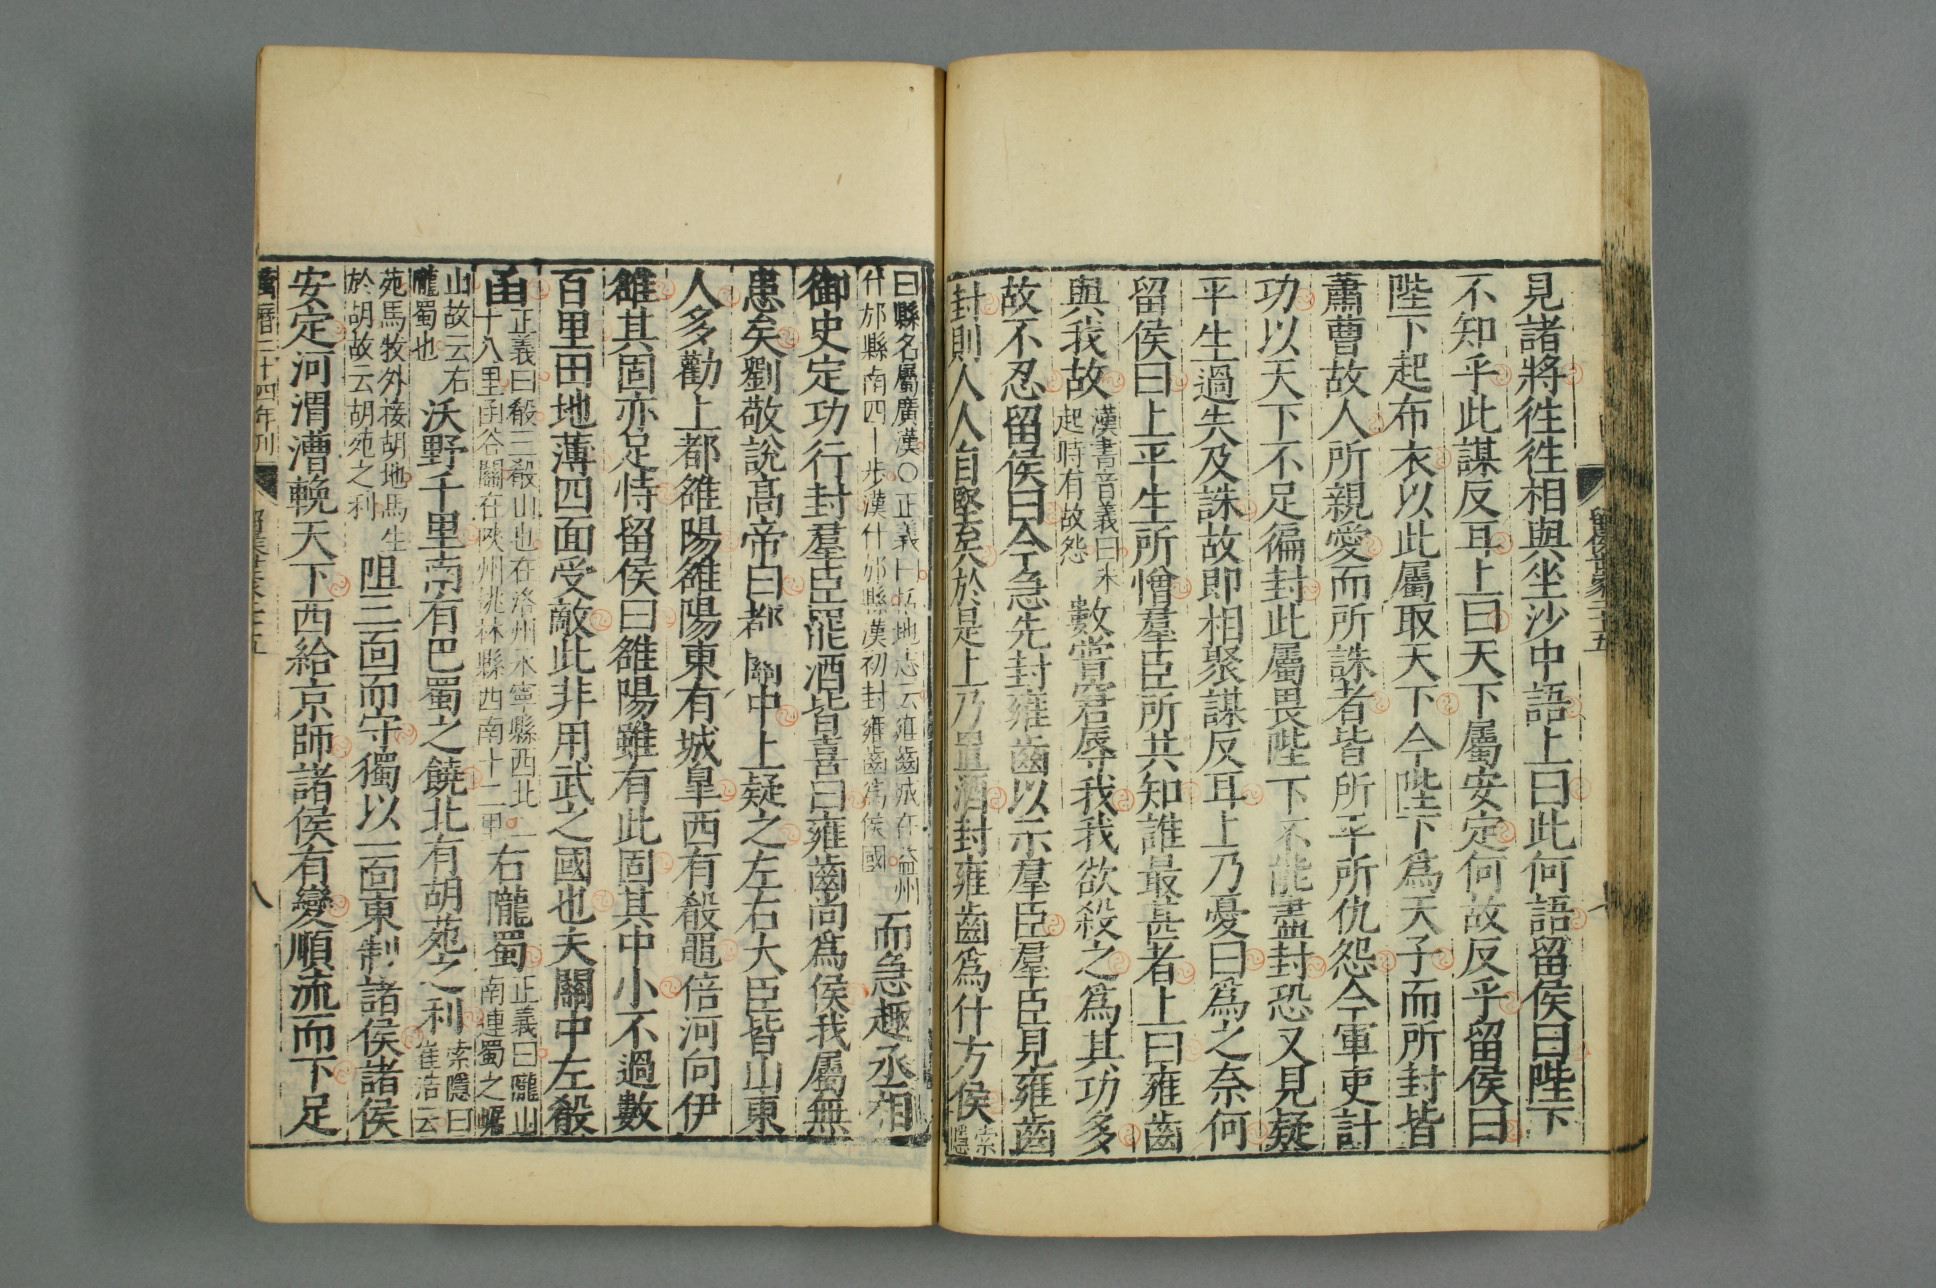 見諸將徃徃相與坐沙中語上曰此何語留侯曰陛下
不知乎此謀反耳上曰天下屬安定何故反乎留侯曰
陛下起布衣以此屬取天下今陛下爲天子而所封皆
蕭曹故人所親愛而所誅者皆所平所仇怨今軍吏計
功以天下不足徧封此屬畏陛下不能盡封恐又見疑
平生過失及誅故即相聚謀反耳上乃憂曰爲之奈何
留侯曰上平生所憎羣臣所共知誰最甚者上曰雍齒
與我故漢書音義曰未起時有故怨數嘗窘辱我我欲殺之爲其功多
故不忍留侯曰今急先封雍齒以示羣臣羣臣見雍齒
封則人人自堅矣於是上乃置酒封雍齒爲什方侯索隱
曰縣名屬廣漢○正義曰括地志云雍齒城在益州什邡縣南四十步漢什邡縣漢初封雍齒爲侯國而急趣丞相
御史定功行封羣臣罷酒皆喜曰雍齒尚爲侯我屬無
患矣劉敬說高帝曰都關中上疑之左右大臣皆山東
人多勸上都雒陽雒陽東有城皐西有殽黽倍河向伊
雒其固亦足恃留侯曰雒陽雖有此固其中小不過數
百里田地薄四面受敵此非用武之國也夫關中左殽
函正義曰殽三殽山也在洛州永寧縣西北二十八里函谷關在陜州桃林縣西南十二里右隴蜀正義曰隴山南連蜀之㟭
山故云右隴蜀也沃野千里南有巴蜀之饒北有胡苑之利索隱曰崔浩云
苑馬牧外接胡地馬生於胡故云胡苑之利阻三面而守獨以一面東制諸侯諸侯
安定河渭漕輓天下西給京師諸侯有變順流而下足
萬曆二十四年刊
留侯世家二十五
八